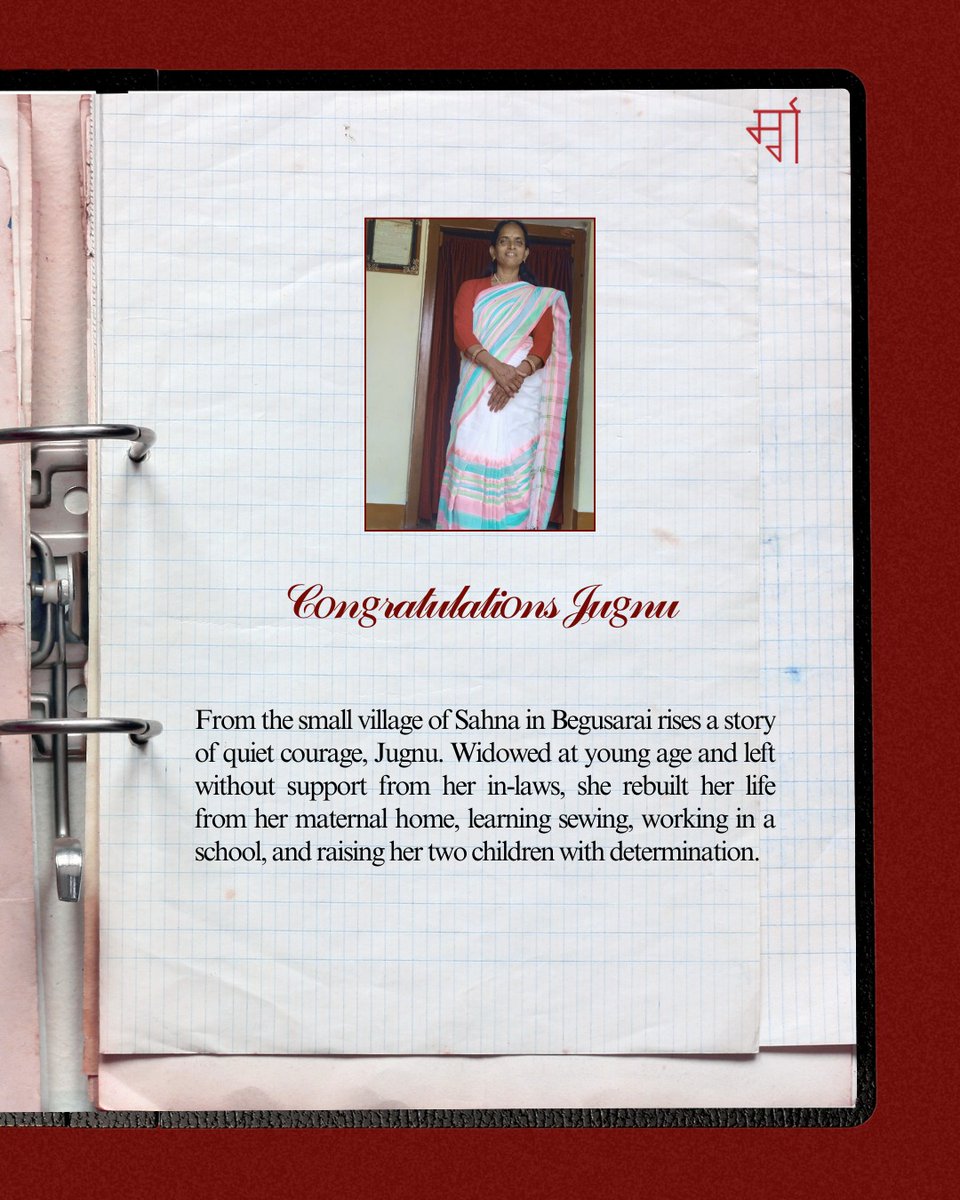 Congratulations Jugnu
From the small village of Sahna in Begusarai rises a story
of quiet courage, Jugnu. Widowed at young age and left
without support from her in-laws, she rebuilt her life
from her maternal home, learning sewing, working in a
school, and raising her two children with determination.